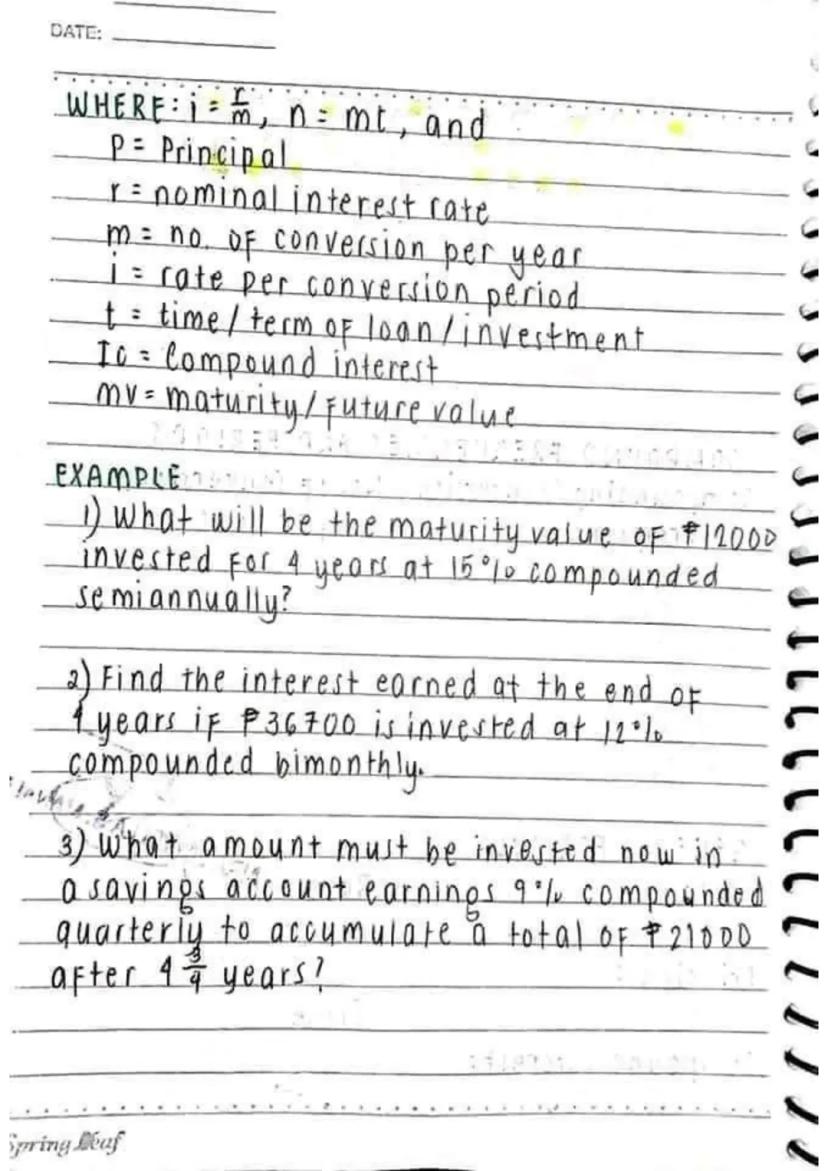 DATE:
WHERE: i = r/m, n = mt, and
P = Principal
r = nominal interest rate
m = no. of conversion per year
i = rate per conversion period
t = time / term of loan / investment
Ic = Compound interest
mv = maturity / Future value
EXAMPLE
1) What will be the maturity value of ₱12000
invested for 4 years at 15% compounded
semiannually?
2) Find the interest earned at the end of
4 years if ₱36700 is invested at 12%
compounded bimonthly.
3) What amount must be invested now in
a savings account earnings 9% compounded
quarterly to accumulate a total of ₱21000
after 4 3/4 years?
Spring Leaf